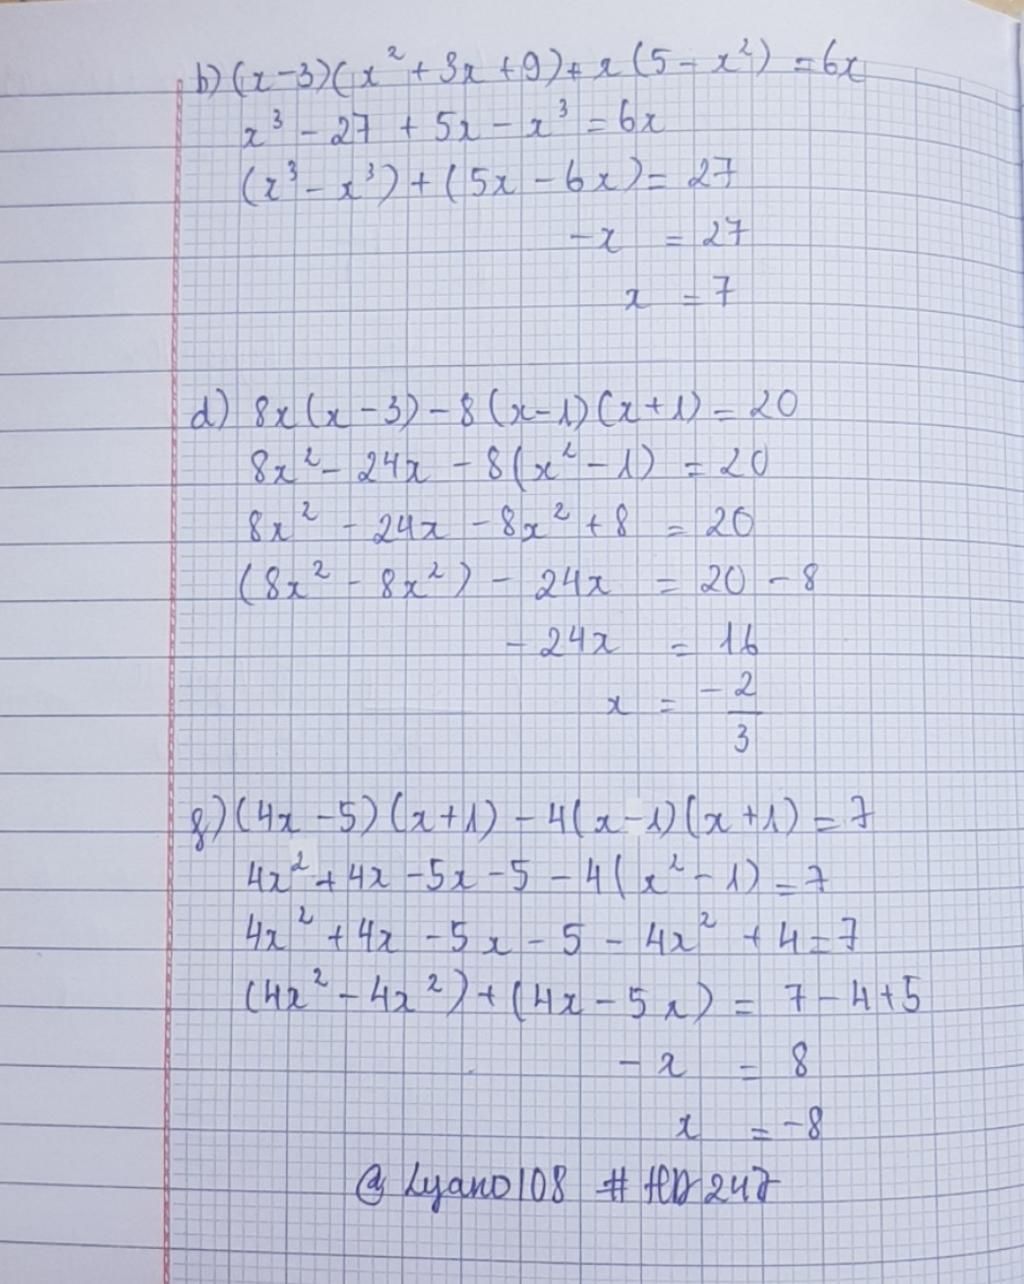 b) (x-3)(x² + 3x + 9) + x(5 - x²) = 6x
x³ - 27 + 5x - x³ = 6x
(x³ - x³) + (5x - 6x) = 27
-x = 27
x = 7
d) 8x(x - 3) - 8(x-1)(x+1) = 20
8x² - 24x - 8(x² - 1) = 20
8x² - 24x - 8x² + 8 = 20
(8x² - 8x²) - 24x = 20 - 8
- 24x = 16
x = -2/3
g) (4x - 5)(x+1) - 4(x-1)(x+1) = 7
4x² + 4x - 5x - 5 - 4(x² - 1) = 7
4x² + 4x - 5x - 5 - 4x² + 4 = 7
(4x² - 4x²) + (4x - 5x) = 7 - 4 + 5
- x = 8
x = -8
@Lyano108 # HD247